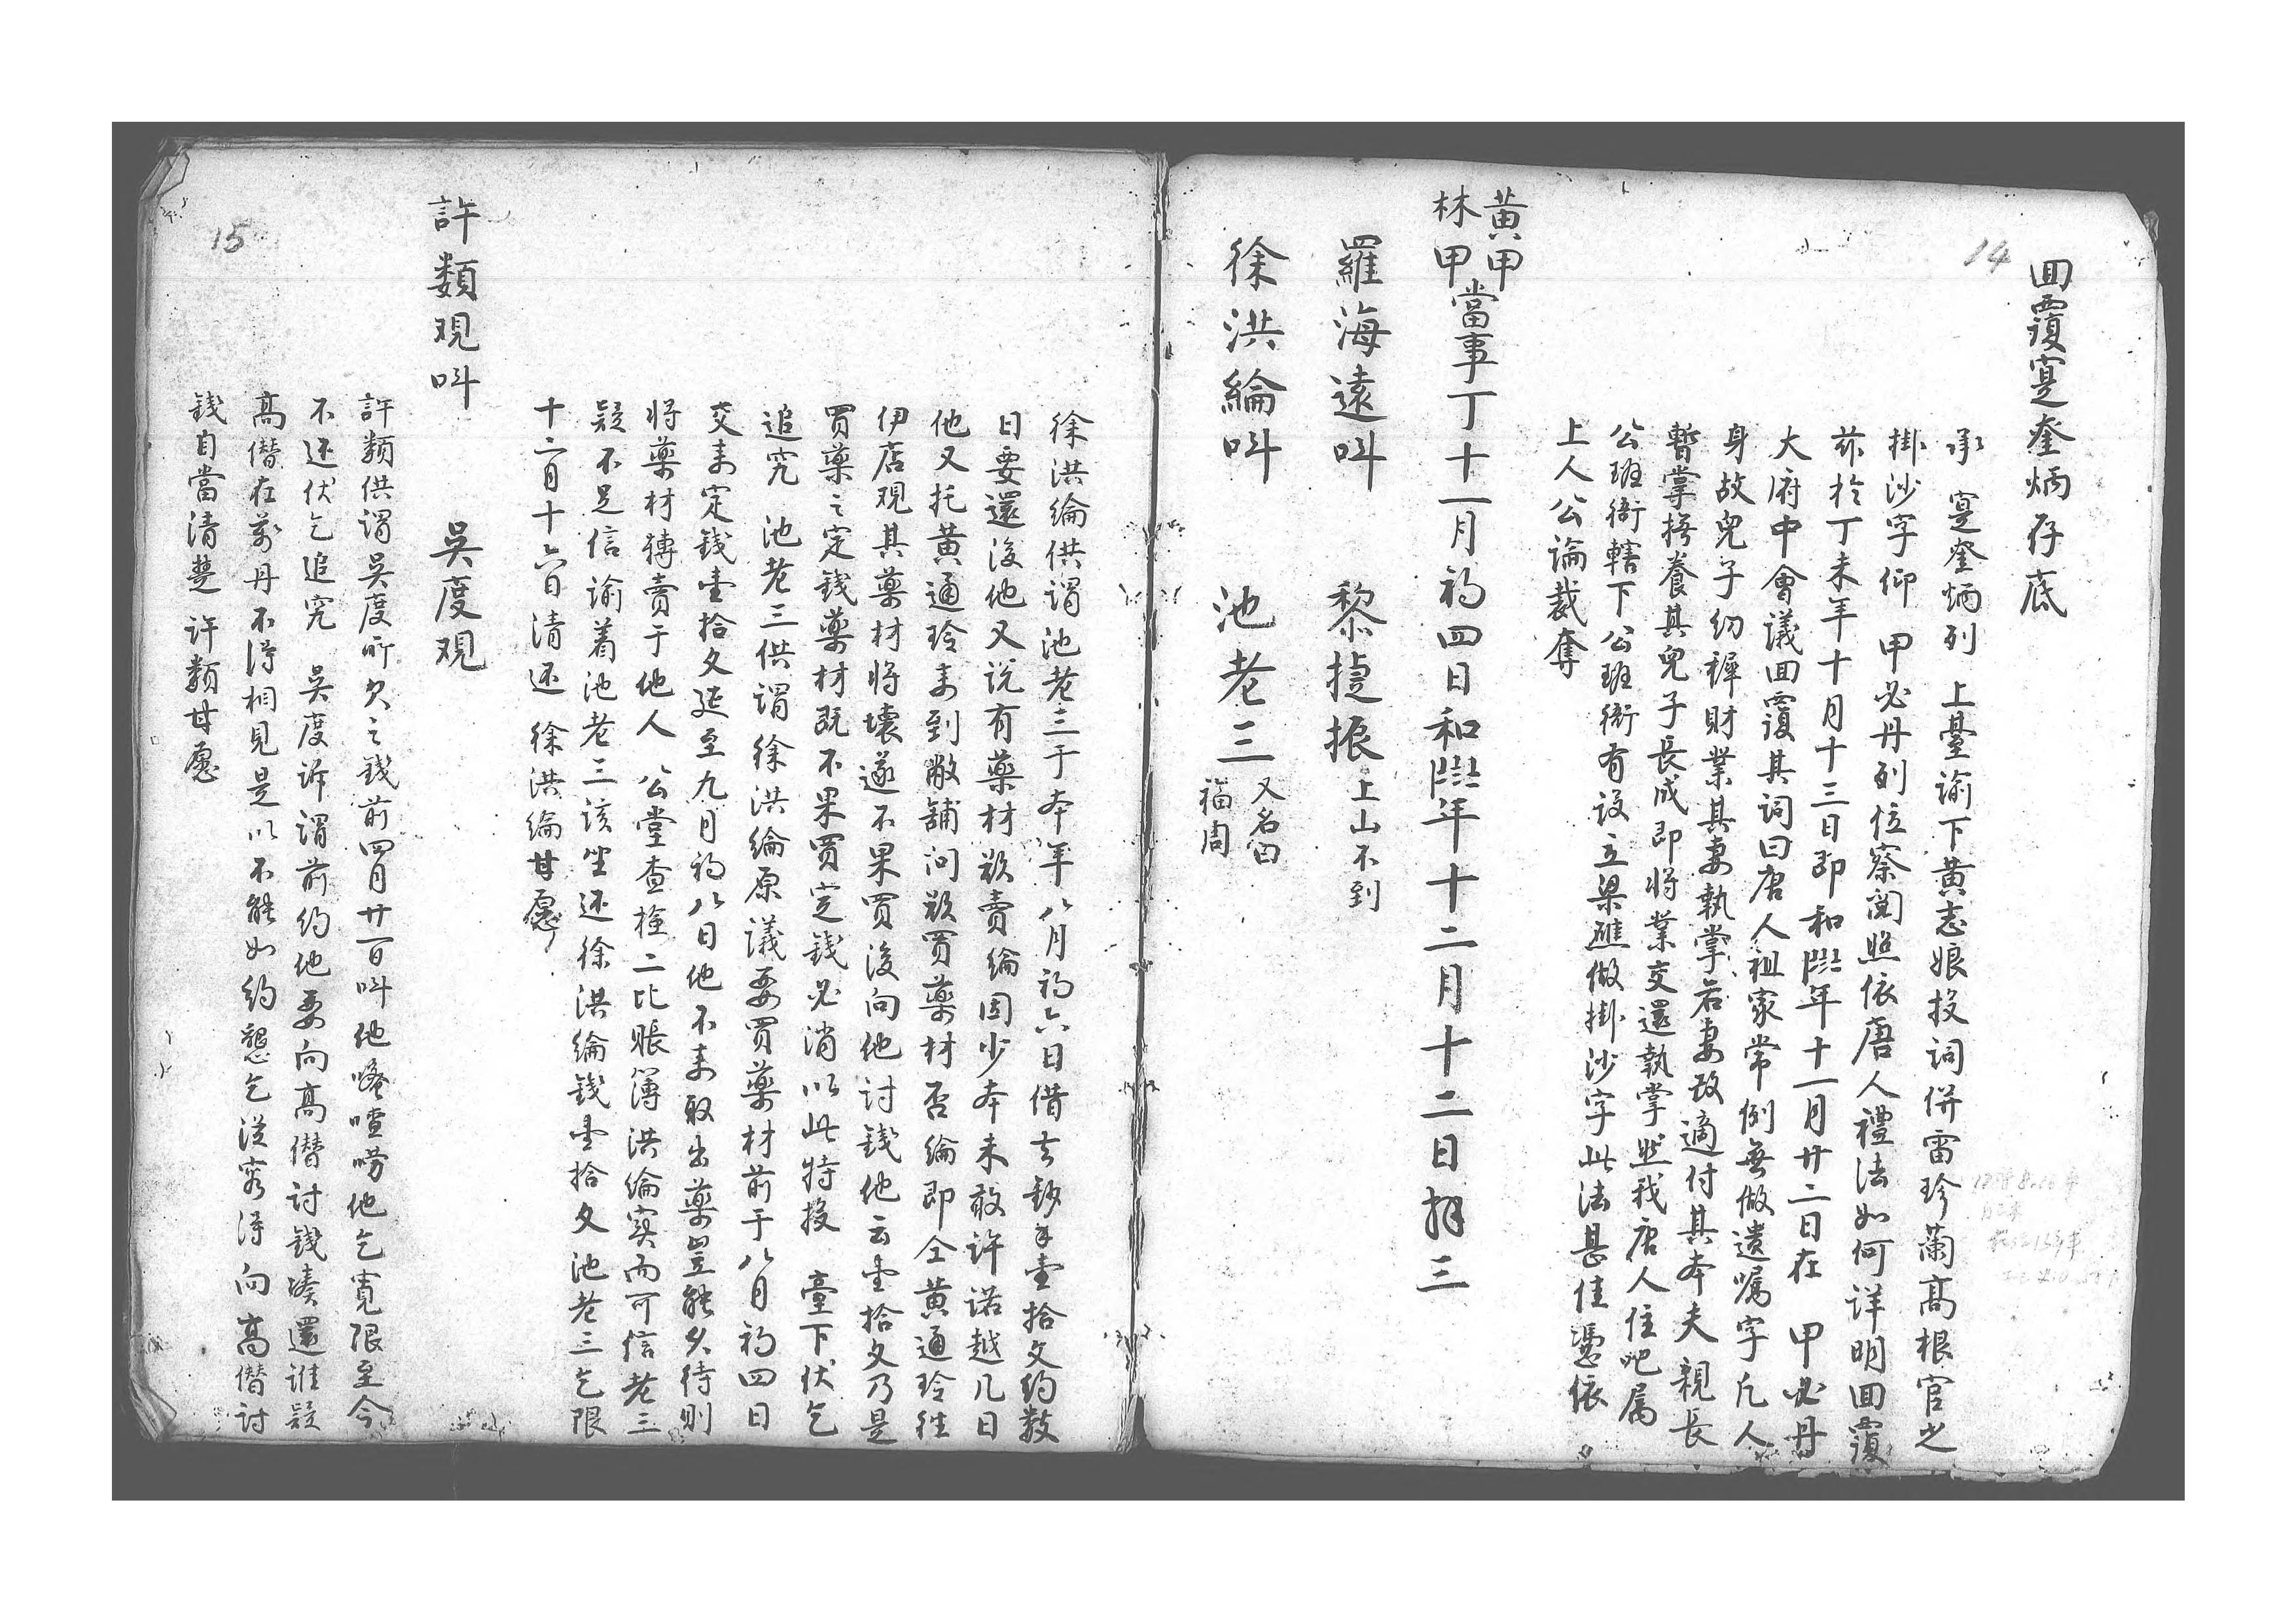 14
回覆寔奎炳存底
承 寔奎炳列 上臺諭下黃志娘投詞併雷珍蘭高根官之
掛沙字仰 甲必丹列位察閱照依唐人禮法如何詳明回覆
茲於丁未年十月十三日即和1847年十一月廿二日在 甲必丹
大府中會議回覆其詞曰唐人祖家常例無做遺囑字凡人
身故兒子幼穉財業其妻執掌若妻改適付其本夫親長
暫掌撫養其兒子長成即將業交還執掌然我唐人住吧屬
公班衙轄下公班衙有設立梁礁做掛沙字此法甚佳憑依
上人公論裁奪
黃甲
林甲
當事丁十一月初四日和1847年十二月十二日拜三
羅海遠叫 黎捷振 上山不到
徐洪綸叫 池老三 又名曰
福周
徐洪綸供謂池老三于本年八月初六日借去鈔壹拾文約數
日要還後他又說有藥材欲賣綸因少本未敢許諾越几日
他又托黃通玲來到敝舖问欲買藥材否綸即仝黃通玲往
伊店观其藥材將壞遂不果買後向他討錢他云壹拾文乃是
買藥之定錢藥材既不果買定錢必消以此特投 臺下伏乞
追究 池老三供謂徐洪綸原議要買藥材前于八月初四日
交來定錢壹拾文延至九月初八日他不來取出藥豈能久待則
將藥材轉賣于他人 公堂查捡二比賬簿洪綸寔而可信老三
疑不足信諭着池老三該坐还徐洪綸錢壹拾文池老三乞限
十二月十六日清还 徐洪綸甘愿
許類观叫 吳度观
許類供謂吳度所欠之錢前四月廿一日叫他嘧喳唠他乞寬限至今
不还伏乞追究 吳度訴謂前約他要向高僭討錢湊還誰疑
高僭在萬丹不得相見是以不能如約懇乞從容得向高僭討
錢自當清楚 許類甘愿
15